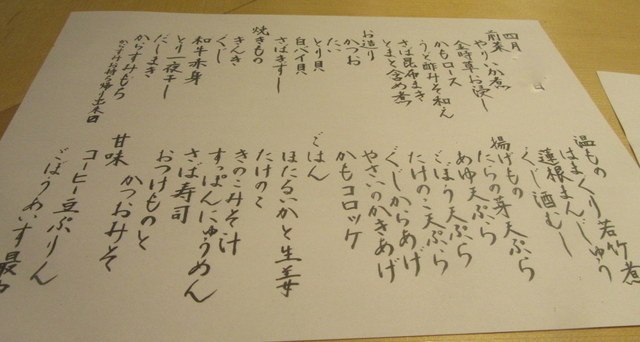 四月 日
前菜
やりいか煮
金時草お浸し
かもロース
うど酢みそ和え
さば昆布まき
とまと含め煮
お造り
かつお
たい
とり貝
白バイ貝
さばきずし
焼きもの
きんき
ぐじ
和牛赤身
とり一夜干し
だしまき
からすみもち
からすみお持ち帰り出来〼
温もの
はまぐり若竹煮
蓮根まんじゅう
ぐじ酒むし
揚げもの
たらの芽天ぷら
あゆ天ぷら
ごぼう天ぷら
たけのこ天ぷら
ぐじからあげ
やさいのかきあげ
かもコロッケ
ごはん
ほたるいかと生姜
たけのこ
きのこみそ汁
すっぽんにゅうめん
さば寿司
おつけものと
かつおみそ
甘味
コーヒー豆ぷりん
ごぼうあいす最中